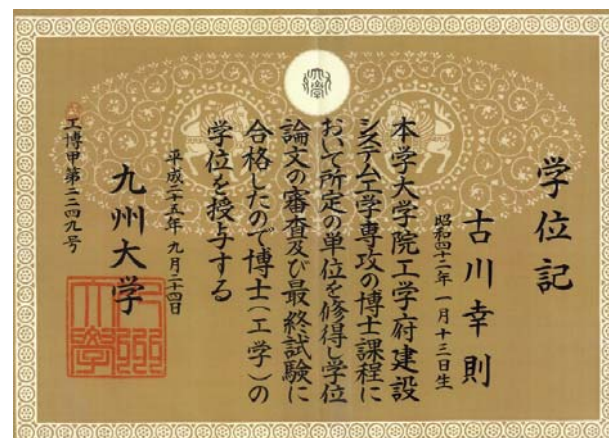 学位記
古川幸則
昭和四十二年一月十三日生
本学大学院工学府建設
システム工学専攻の博士課程に
おいて所定の単位を修得し学位
論文の審査及び最終試験に
合格したので博士（工学）の
学位を授与する
平成二十五年九月二十四日
九州大学
工博甲第二二四九号